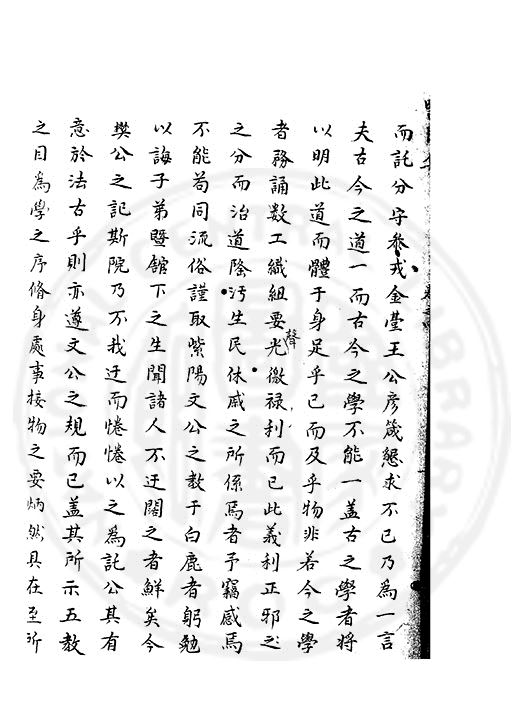 而託分守參戎金臺王公彥箴懇求不已乃為一言
夫古今之道一而古今之學不能一盖古之學者將
以明此道而體于身足乎已而及乎物非若今之學
者務誦数工織組要光聲徼禄利而已此義利正邪之
之分而治道隆汚生民休戚之所係焉者予竊感焉
不能苟同流俗謹取紫陽文公之教于白鹿者躬勉
以誨子弟暨舘下之生聞諸人不迂闊之者鮮矣今
樊公之記斯院乃不我迂而惓惓以之為託公其有
意於法古乎則亦遵文公之規而已盖其所示五教
之目為學之序脩身處事接物之要炳然具在至所